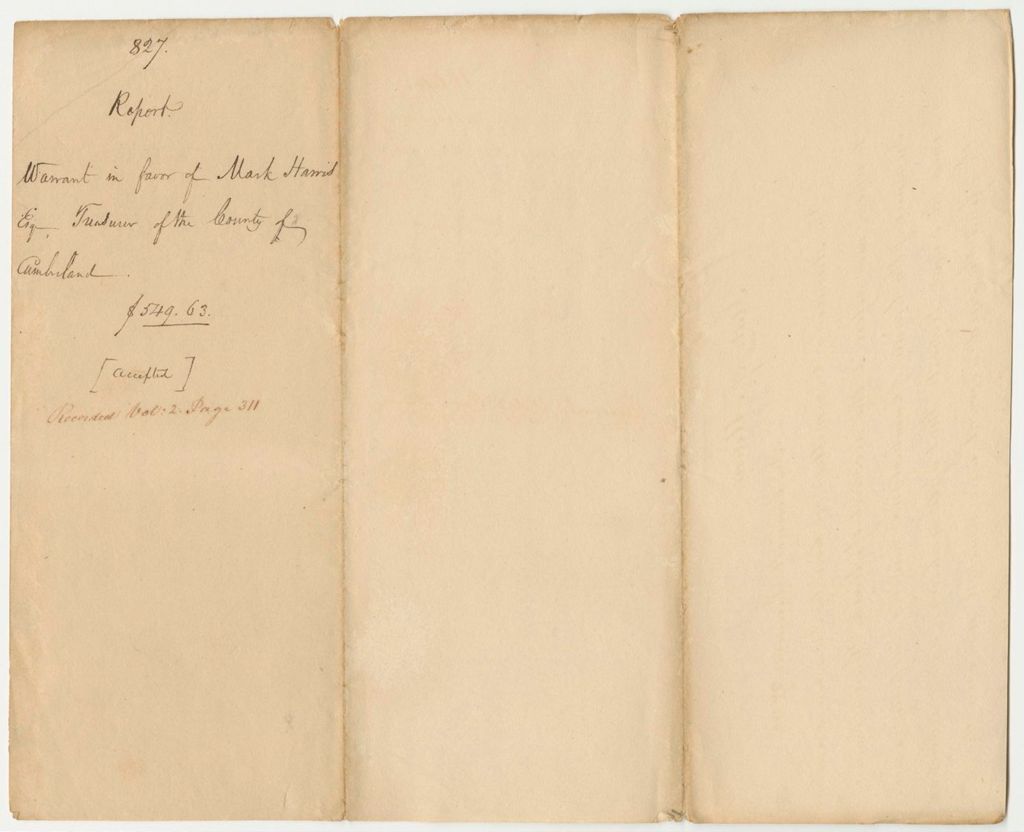 827.
Report.
Warrant in favor of Mark Harris
Esq. Treasurer of the County of
Cumberland.
$549.63.
[accepted]
Recorded Vol: 2. Page 311